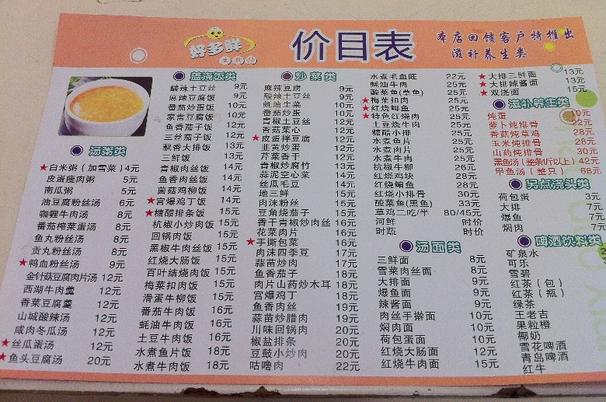 好多鲜
价目表
本店回馈客户特推出
滋补养生类
汤粥类
★白米粥（加雪菜）4元
皮蛋瘦肉粥 5元
南瓜粥 5元
油豆腐粉丝汤 6元
咖喱牛肉汤 8元
番茄榨菜蛋汤 8元
鱼丸粉丝汤 8元
贡丸粉丝汤 8元
★鸭血粉丝汤 9元
金针菇豆腐肉片汤 12元
西湖牛肉羹 12元
香菜豆腐羹 12元
山城酸辣汤 12元
咸肉冬瓜汤 12元
★丝瓜蛋汤 12元
★鱼头豆腐汤 20元
盖浇饭类
酸辣土豆丝 9元
麻辣豆腐饭 9元
番茄炒蛋饭 10元
家常豆腐饭 10元
鱼香茄子饭 12元
三丝茄子饭 12元
飘香大排饭 13元
三鲜饭 14元
青椒肉丝饭 14元
鱼香肉丝饭 14元
菌菇鸡柳饭 14元
★宫爆鸡丁饭 14元
★糖醋排条饭 15元
杭椒小炒肉饭 15元
回锅肉饭 15元
黑椒牛肉丝饭 15元
红烧大肠饭 15元
百叶结烧肉饭 15元
梅菜扣肉饭 15元
滑蛋牛柳饭 16元
番茄牛肉饭 16元
蚝油牛肉饭 16元
土豆牛肉饭 16元
水煮鱼片饭 18元
水煮牛肉饭 18元
炒菜类
麻辣豆腐 9元
酸辣土豆丝 9元
蚝油生菜 10元
番茄炒蛋 10元
青椒土豆丝 12元
香菇菜心 12元
★皮蛋拌豆腐 12元
韭黄炒蛋 12元
芹菜香干 12元
青椒炒腐竹 13元
蒜泥空心菜 13元
丝瓜毛豆 14元
地三鲜 15元
肉末粉丝 15元
豆角烧茄子 15元
香干青椒炒肉丝 16元
花菜肉片 16元
★手撕包菜 16元
肉沫四季豆 17元
蒜苗炒肉 17元
鱼香茄子 18元
肉片山药炒木耳 18元
宫爆鸡丁 18元
鱼香肉丝 18元
蒜苗炒腊肉 19元
川味回锅肉 20元
椒盐排条 20元
豆鼓小炒肉 20元
咕噜肉 22元
水煮毛血旺 22元
蚝油牛肉 25元
酸菜鱼(草鱼) 25元
★梅菜扣肉 25元
★红烧鲳鱼 25元
★特色红烧肉 25元
★土豆烧牛肉 25元
糖醋小排 25元
水煮鱼片 25元
水煮牛肉 25元
杭椒牛柳 26元
红烧鸡块 28元
红烧鳊鱼 28元
红烧小排骨 30元
酸菜鱼(黑鱼) 33元
草鸡二吃/半 80/45元
河鲜 时价
时蔬 时价
汤面类
三鲜面 8元
雪菜肉丝面 8元
大排面 9元
爆鱼面 9元
辣酱面 9元
肉丝手擀面 10元
焖肉面 10元
荷包蛋面 10元
红烧大肠面 12元
红烧牛肉面 15元
★大排三鲜面 13元
★大排辣酱面 13元
★双浇面 15元
滋补养生类
炖蛋 10元
萝卜炖排骨 22元
香菇炖草鸡 28元
玉米炖排骨 28元
山药炖排骨 30元
黑鱼汤（整条1斤以上）42元
甲鱼汤（整只） 68元
另点浇头类
荷包蛋 3元
大排 7元
爆鱼 7元
焖肉 7元
啤酒饮料类
矿泉水
可乐
雪碧
红茶（包）
红茶（瓶）
绿茶
王老吉
果粒橙
椰奶
雪花啤酒
青岛啤酒
红牛